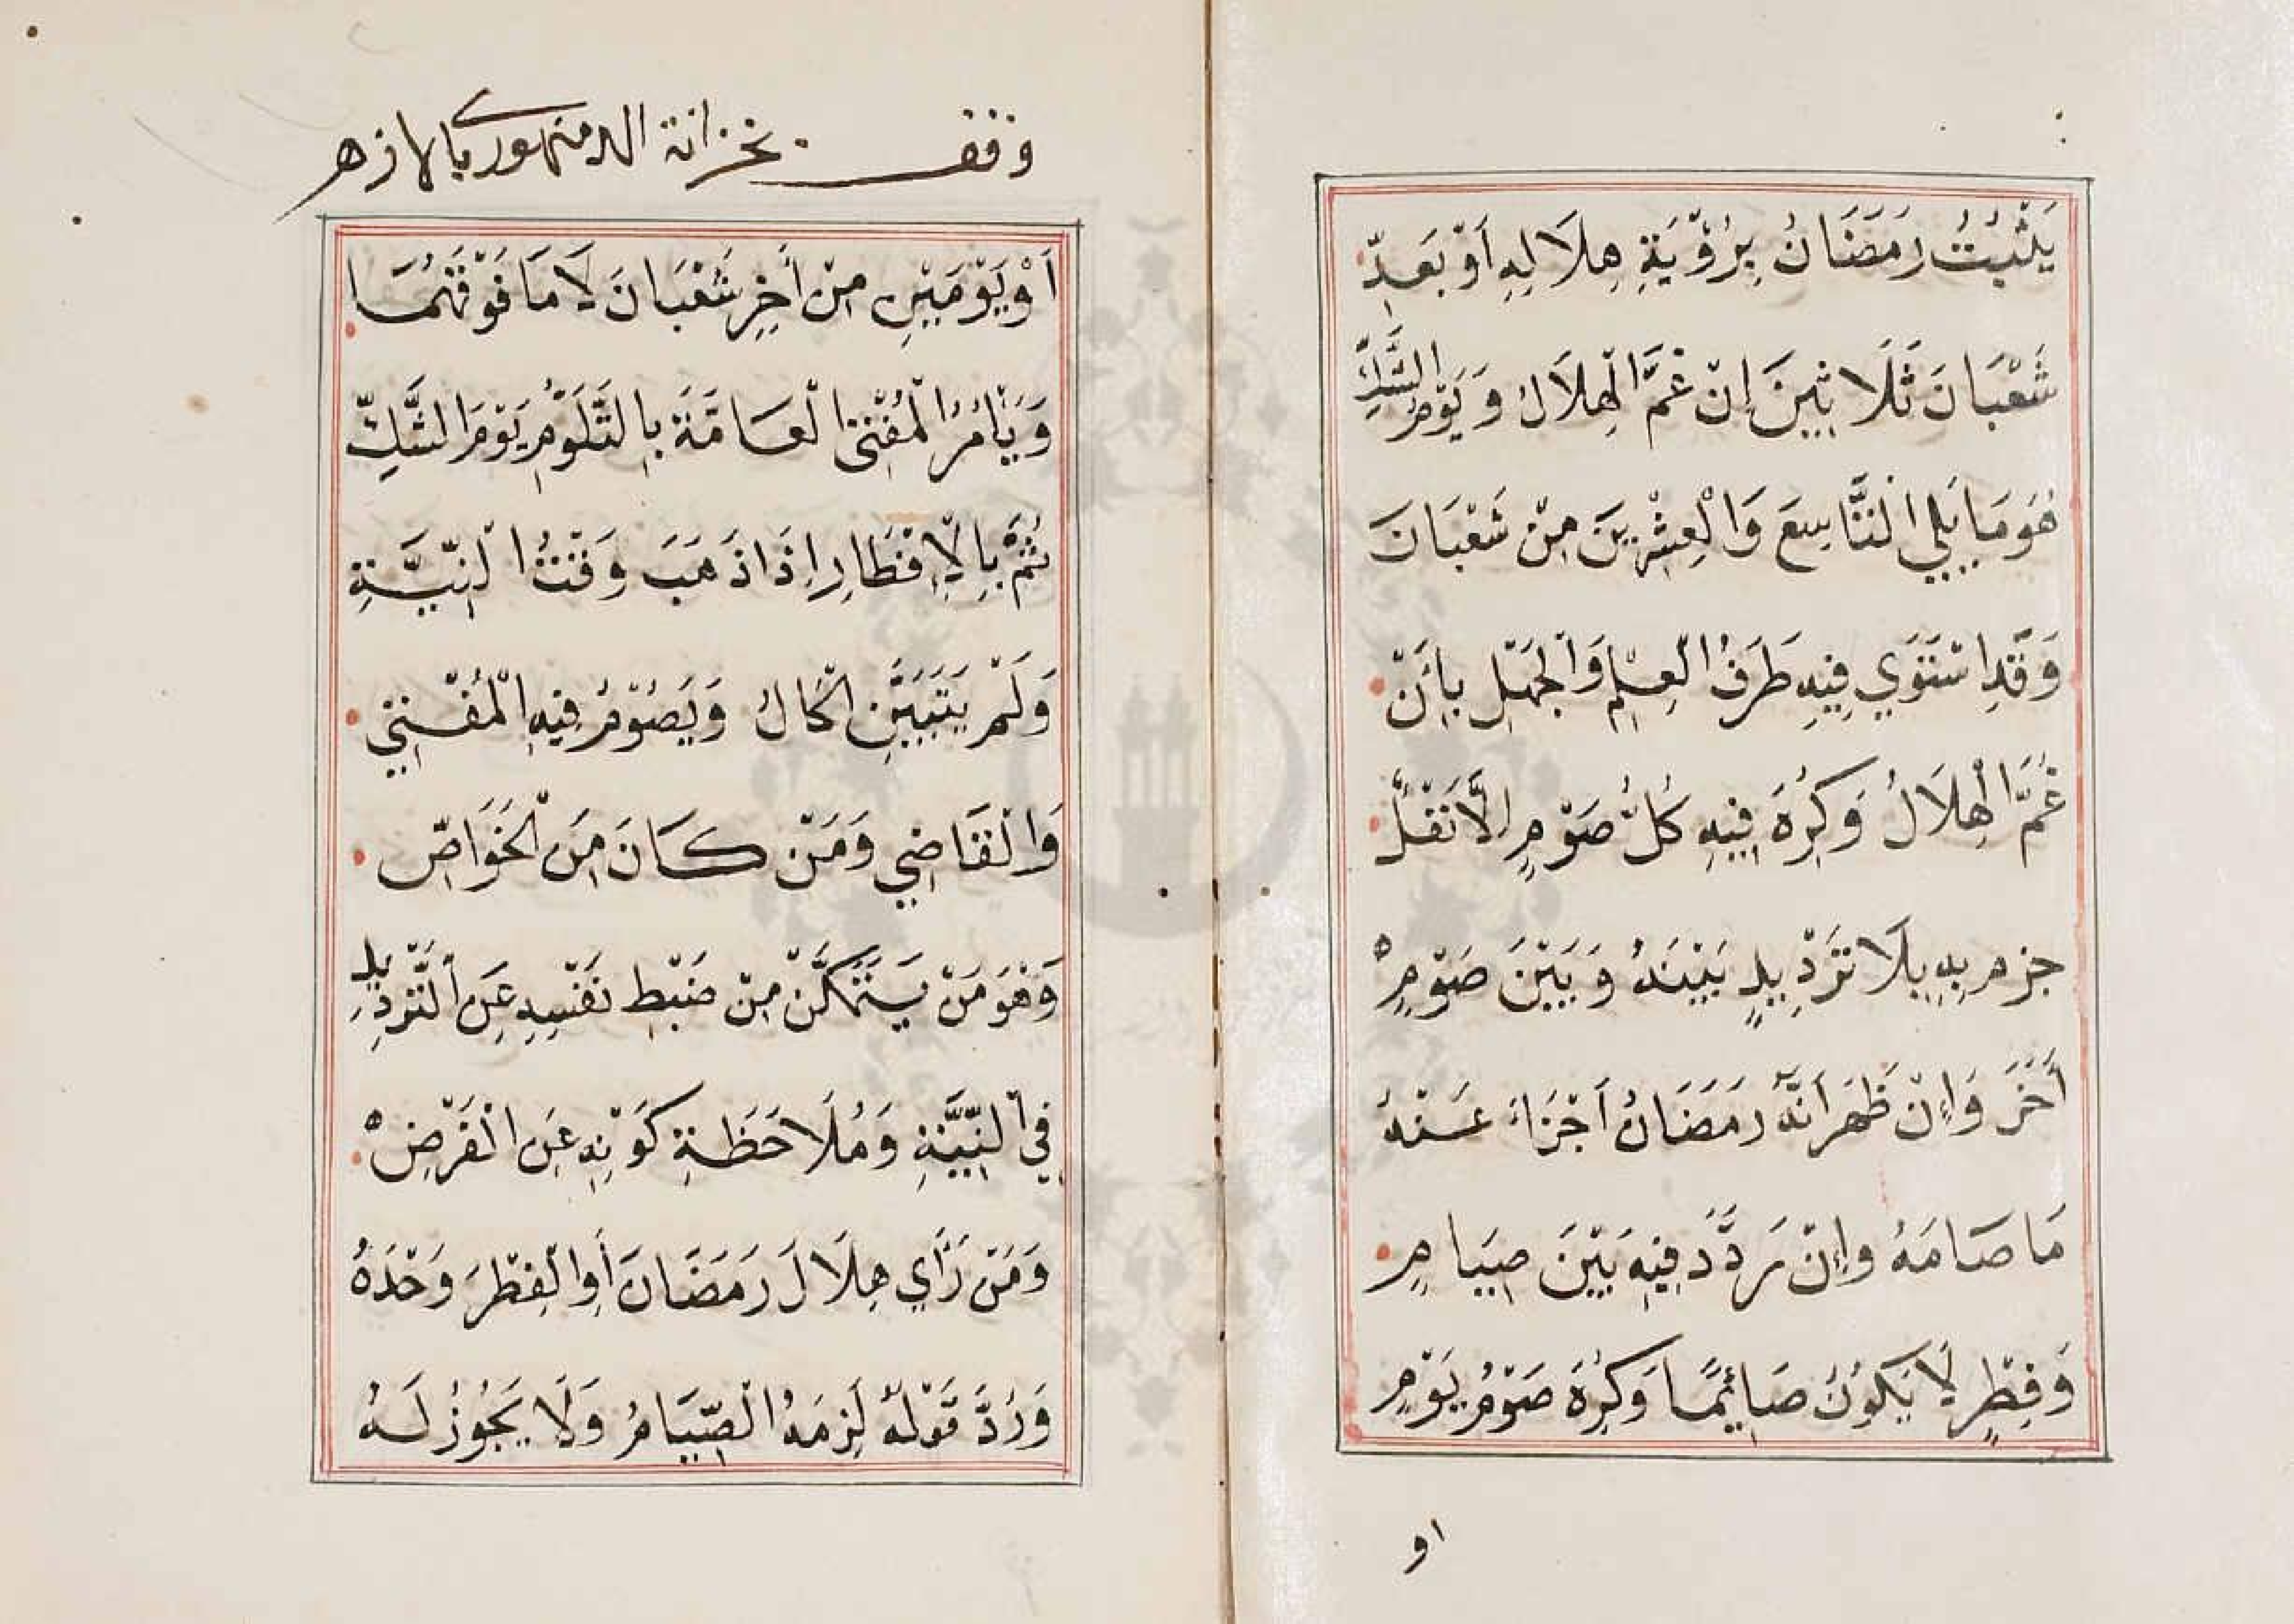 يَثْبُتُ رَمَضَانُ بِرُؤْيَةِ هِلَالِهِ أَوْ بَعدِّ
شَعْبَانَ ثَلَاثِينَ إِنْ غُمَّ الْهِلَالُ وَيَوْمُ الشَّكِّ
هُوَ مَا يَلِي التَّاسِعَ وَالْعِشْرِينَ مِنْ شَعْبَانَ
وَقَدِ اسْتَوَي فِيهِ طَرَفُ الْعِلْمِ وَالْجَهْلِ بِأَنْ
غُمَّ الْهِلَالُ وَكُرِهَ فِيهِ كُلُّ صَوْمٍ إِلَّا نَفْلً
جزم بِهِ بِلَا تَرْدِيدٍ بَيْنَهُ وَبَيْنَ صَوْمٍ
أَخَرَ وَإِنْ ظَهَرَ أَنَّهُ رَمَضَانُ أَجْزَاءَ عَنْهُ
مَا صَامَهُ وإِنْ رَدَّدَ فِيهِ بَيْنَ صِيَامٍ
وَفِطْرٍ لَا يَكُونُ صَائِمًا وَكُرِهَ صَوْمُ يَوْمٍ
او
وقف بخزانة الدمنهورى بالازهر
أَوْ يَوْمَيْنِ مِنْ أَخِرِ شَعْبَانَ لَا مَا فَوْقَهُمَا
وَيَأْمُرُ الْمُفْتِى الْعَامَّةَ بِالتَّلَوُّمِ يَوْمَ الشَّكِّ
ثُمَّ بِالْإِفْطَارِ إِذَا ذَهَبَ وَقْتُ الْنِيَّةِ
وَلَمْ يَتَبَيَّنِ الْحَالُ وَيَصُوْمُ فِيهِ الْمُفْتِي
وَالْقَاضِي وَمَنْ كَانَ مِنَ الْخَوَاصِّ
وَهُوَ مَنْ يَتَمَكَّنْ مِنْ ضَبْطِ نَفْسِهِ عَنِ الْتَّرْدِيدِ
فِي الْنِيَّةِ وَمُلَاحَظَةِ كَوْنِهِ عَنِ الْفَرْضِ
وَمَنْ رَأَي هِلَالَ رَمَضَانَ أَوِ الْفِطْرَ وَحْدَهُ
وَرُدَّ قَوْلُهُ لَزِمَهُ الْصِّيَامُ وَلَا يَجُوزُ لَهُ